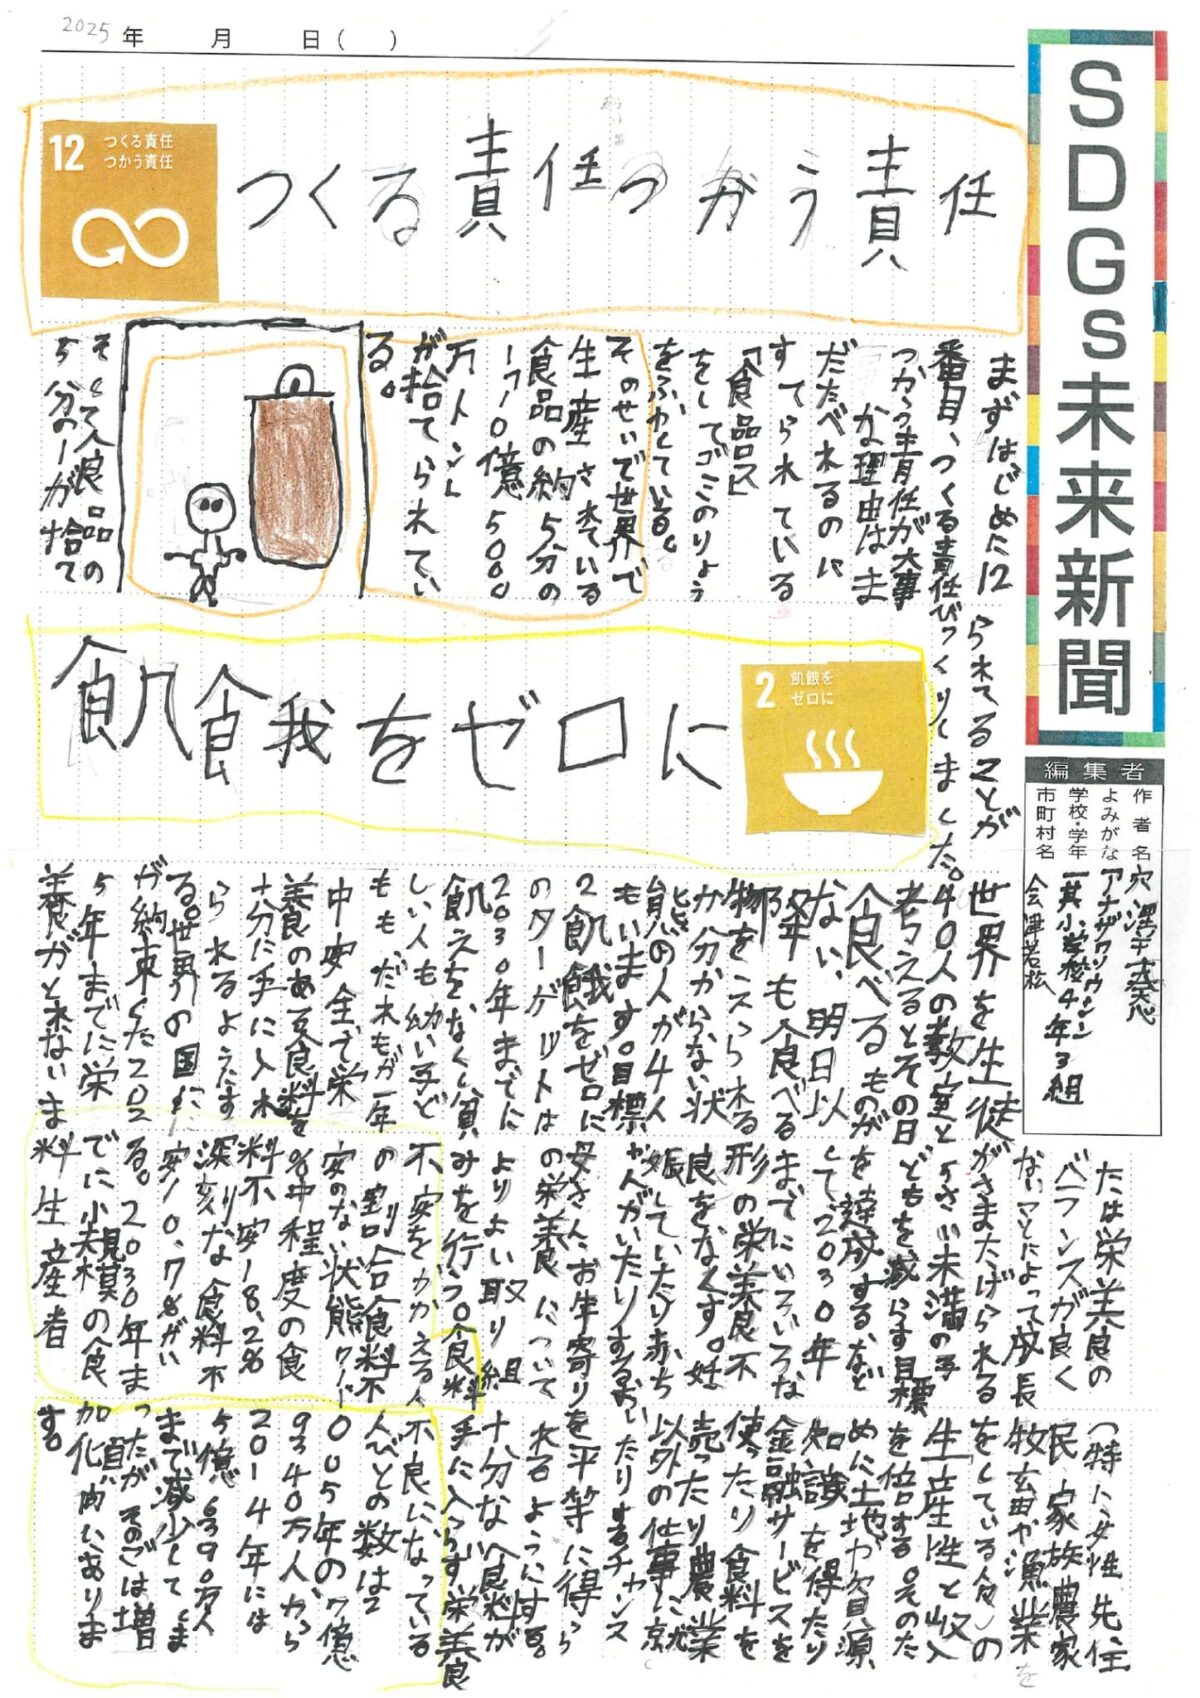 2025年　月　日(　)
SDGs未来新聞
編集者
作者名
よみがな
学校・学年 一箕小学校4年3組
市町村名 会津若松
12 つくる責任
つかう責任
つくる責任つかう責任
まずはじめに12
番目、つくる責任
つかう責任が大事
な理由はま
だたべれるのに
すてられている
「食品ロス」
をしてゴミのりょう
をふやしている。
そのせいで世界で
生産されている
食品の約5分の
1、
万トン
が捨てられてい
る。
そして食品の
5分の1が捨て
られてることが
びっくりしました。
2 飢餓を
ゼロに
飢餓をゼロに
世界を生徒が
40人の教室と
考えるとその日
食べるものが
ない、明日以
降も食べる
物をえられる
か分からない状
態の人が4人
もいます。目標
2飢餓をゼロに
のターゲットは
2030年までに
飢えをなくし貧
しい人も幼い子ど
もも、だれもが一年
中安全で栄
養のある食料を
十分に手に入れ
られるようにす
る。世界の国に
が約束した202
5年までに栄
養がとれないま
たは栄養食の
バランスが良く
ないことによって成長
がさまたげられる
5さい未満の子
どもを減らす目標
を達成するなど
して2030年
までにいろいろな
形の栄養不
良をなくす。妊
娠していたり赤ち
ゃんがいたりするお
母さん、お年寄り
の栄養について
よりよい取り組
みを行う。食料
不安をかかえる人
の割合食料不
安のない状態
%中程度の食
料不安18.2%
深刻な食料不
安10.7%がい
る。2030年ま
でに小規模の食
料生産者
(特に女性、先住
民、家族農家
牧畜や漁業を
をしている人)の
生産性と収入
を倍する。そのた
めに土地や資源
知識を得たり
金融サービスを
使ったり食料を
売ったり農業
以外の仕事に就
いたりするチャンス
を平等に得ら
れるようにする。
十分な食料が
手に入らず、栄養
不良になっている
人びとの数は2
005年の7億
9340万人から
2014年には
5億6390万人
まで減少してま
ったがそのごは増
加に向いおりま
す。